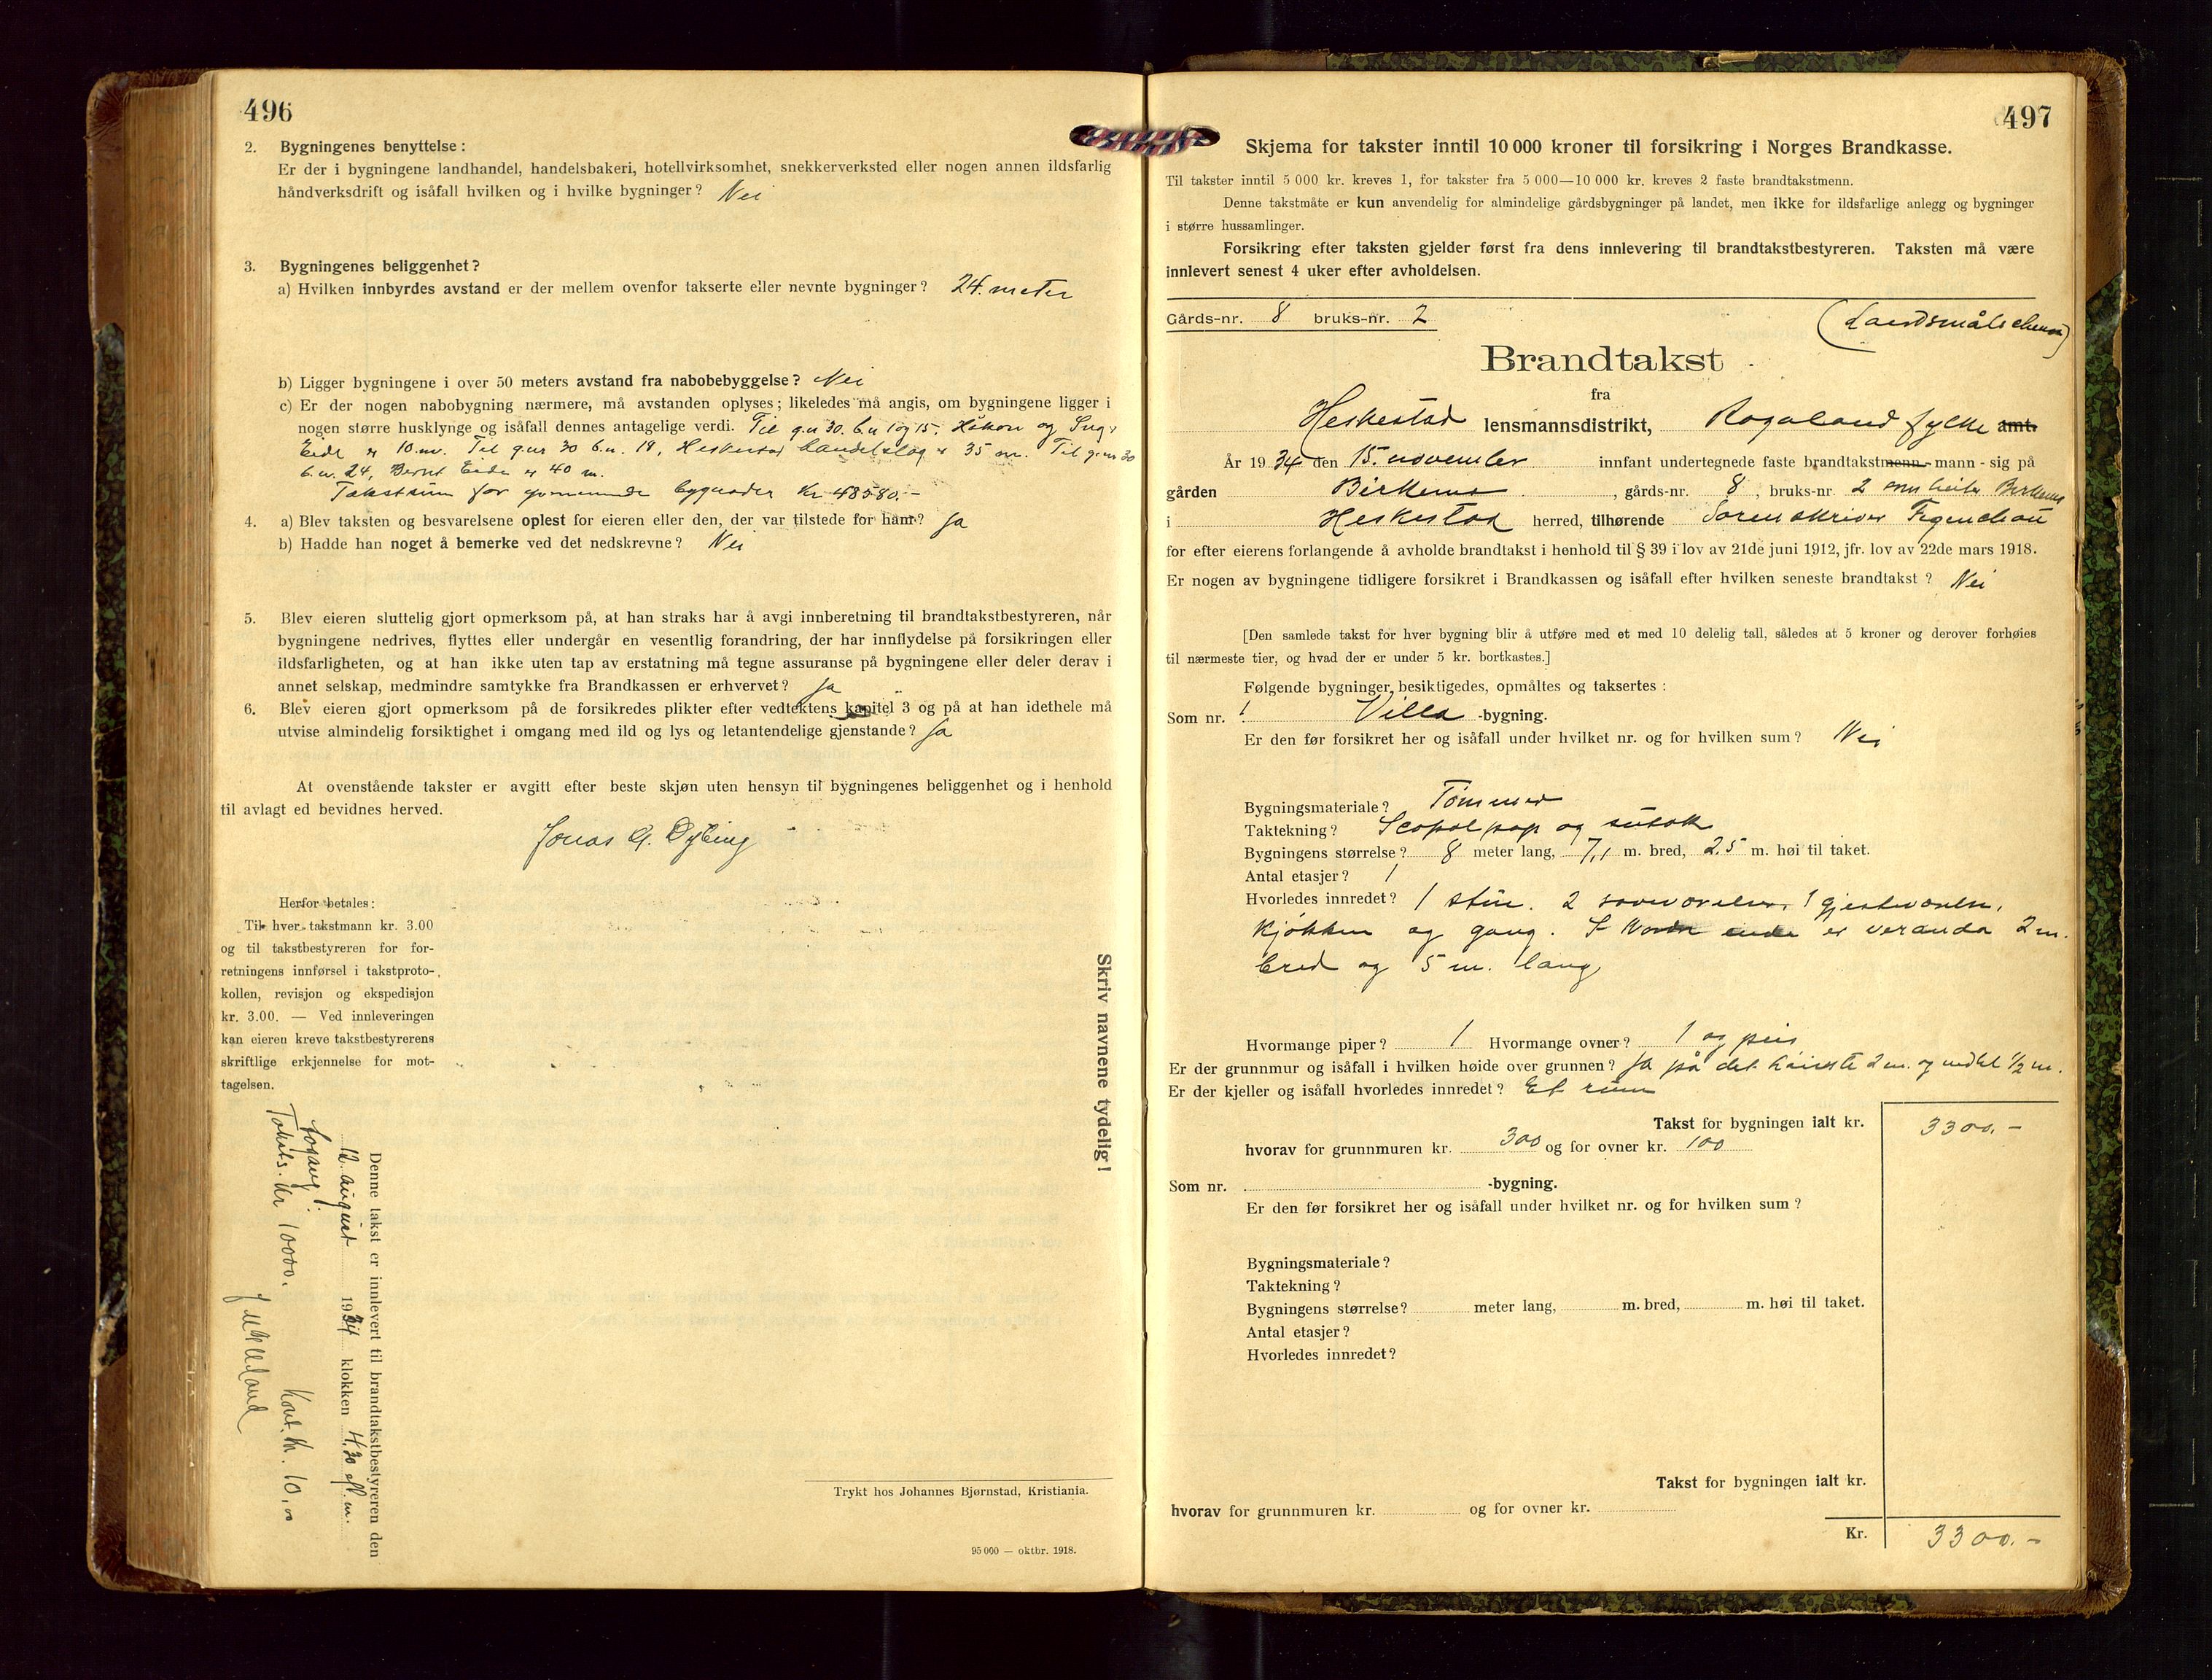 496
2. Bygningenes benyttelse:
Er der i bygningene landhandel, handelsbakeri, hotellvirksomhet, snekkerverksted eller nogen annen ildsfarlig
håndverksdrift og isåfall hvilken og i hvilke bygninger? Nei
3. Bygningenes beliggenhet?
a) Hvilken innbyrdes avstand er der mellem ovenfor takserte eller nevnte bygninger? 24 meter
b) Ligger bygningene i over 50 meters avstand fra nabobebyggelse? Nei
c) Er der nogen nabobygning nærmere, må avstanden oplyses; likeledes må angis, om bygningene ligger i
nogen større husklynge og isåfall dennes antagelige verdi. Til g.n 30. b.n 1 og 15. Håkon og
Eide er 10 m. Til g.nr 30 b.n. 19, Heskestad handelslag er 35 m. Til g.nr 30
b.n. 24, Bernt Eide er 40 m.
Takstsum for bygnader Kr 48580.-
4. a) Blev taksten og besvarelsene oplest for eieren eller den, der var tilstede for ham? Ja
b) Hadde han noget å bemerke ved det nedskrevne? Nei
5. Blev eieren sluttelig gjort opmerksom på, at han straks har å avgi innberetning til brandtakstbestyreren, når
bygningene nedrives, flyttes eller undergår en vesentlig forandring, der har innflydelse på forsikringen eller
ildsfarligheten, og at han ikke uten tap av erstatning må tegne assuranse på bygningene eller deler derav i
annet selskap, medmindre samtykke fra Brandkassen er erhvervet? Ja
6. Blev eieren gjort opmerksom på de forsikredes plikter efter vedtektens kapitel 3 og på at han idethele må
utvise almindelig forsiktighet i omgang med ild og lys og letantendelige gjenstande? Ja
At ovenstående takster er avgitt efter beste skjøn uten hensyn til bygningenes beliggenhet og i henhold
til avlagt ed bevidnes herved.
Jonas G. Dybing
Herfor betales:
Til hver takstmann kr. 3.00
og til takstbestyreren for for-
retningens innførsel i takstproto-
kollen, revisjon og ekspedisjon
kr. 3.00. — Ved innleveringen
kan eieren kreve takstbestyrerens
skriftlige erkjennelse for mot-
tagelsen.
Denne takst er innlevert til brandtakstbestyreren den
12 august 1934 klokken 4.30 ef.m.
Takts. kr 10000. Kont. kr. 10,00
Skriv navnene tydelig!
Trykt hos Johannes Bjørnstad, Kristiania.
95 000 — oktbr. 1918.
497
Skjema for takster inntil 10 000 kroner til forsikring i Norges Brandkasse.
Til takster inntil 5 000 kr. kreves 1, for takster fra 5 000—10 000 kr. kreves 2 faste brandtakstmenn.
Denne takstmåte er kun anvendelig for almindelige gårdsbygninger på landet, men ikke for ildsfarlige anlegg og bygninger
i større hussamlinger.
Forsikring efter taksten gjelder først fra dens innlevering til brandtakstbestyreren. Taksten må være
innlevert senest 4 uker efter avholdelsen.
Gårds-nr. 8 bruks-nr. 2
Brandtakst
fra
Heskestad lensmannsdistrikt, Rogaland fylke amt.
År 1934 den 15. november innfant undertegnede faste brandtakstmenn - mann - sig på
gården Birkemo, gårds-nr. 8, bruks-nr. 2 som heiter Birkemo
i Heskestad herred, tilhørende Sorenskriver
for efter eierens forlangende å avholde brandtakst i henhold til § 39 i lov av 21de juni 1912, jfr. lov av 22de mars 1918.
Er nogen av bygningene tidligere forsikret i Brandkassen og isåfall efter hvilken seneste brandtakst? Nei
[Den samlede takst for hver bygning blir å utføre med et med 10 delelig tall, således at 5 kroner og derover forhøies
til nærmeste tier, og hvad der er under 5 kr. bortkastes.]
Følgende bygninger besiktigedes, opmåltes og taksertes:
Som nr. 1 Villa -bygning.
Er den før forsikret her og isåfall under hvilket nr. og for hvilken sum? Nei
Bygningsmateriale? Tømmer
Taktekning? pap og sutak
Bygningens størrelse? 8 meter lang, 7,1 m. bred, 2.5 m. høi til taket.
Antal etasjer? 1
Hvorledes innredet? 1 stue. 2 soveværelser, 1 gjesteværelse,
kjøkken og gang. I nordre ende er veranda 2 m.
bred og 5 m. lang
Hvormange piper? 1 Hvormange ovner? 1 og peis
Er der grunnmur og isåfall i hvilken høide over grunnen? Ja på det høieste 2 m. og nedtil 1/2 m.
Er der kjeller og isåfall hvorledes innredet? Et rum
Takst for bygningen ialt kr. 3300.-
hvorav for grunnmuren kr. 300 og for ovner kr. 100
Som nr. -bygning.
Er den før forsikret her og isåfall under hvilket nr. og for hvilken sum?
Bygningsmateriale?
Taktekning?
Bygningens størrelse? meter lang, m. bred, m. høi til taket.
Antal etasjer?
Hvorledes innredet?
Takst for bygningen ialt kr.
hvorav for grunnmuren kr. og for ovner kr.
Kr. 3300.-